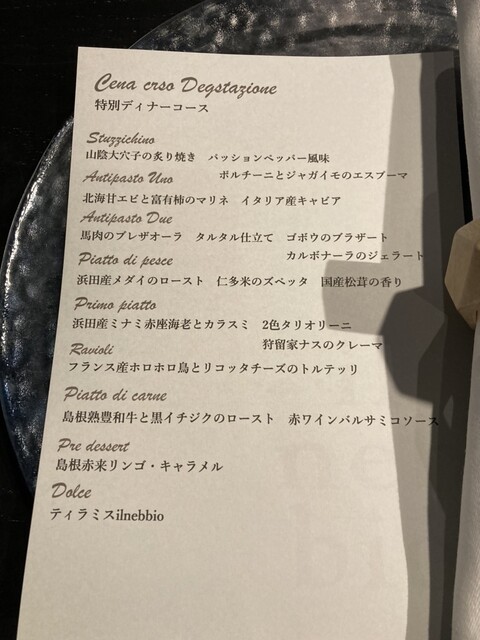 Cena crso Degstazione
特別ディナーコース
Stuzzichino
山陰大穴子の炙り焼き　パッションペッパー風味
Antipasto Uno
ポルチーニとジャガイモのエスプーマ
北海甘エビと富有柿のマリネ　イタリア産キャビア
Antipasto Due
馬肉のブレザオーラ　タルタル仕立て　ゴボウのブラザート
Piatto di pesce
カルボナーラのジェラート
浜田産メダイのロースト　仁多米のズペッタ　国産松茸の香り
Primo piatto
浜田産ミナミ赤座海老とカラスミ　2色タリオリーニ
Ravioli
狩留家ナスのクレーマ
フランス産ホロホロ鳥とリコッタチーズのトルテッリ
Piatto di carne
島根熟豊和牛と黒イチジクのロースト　赤ワインバルサミコソース
Pre dessert
島根赤来リンゴ・キャラメル
Dolce
ティラミスilnebbio